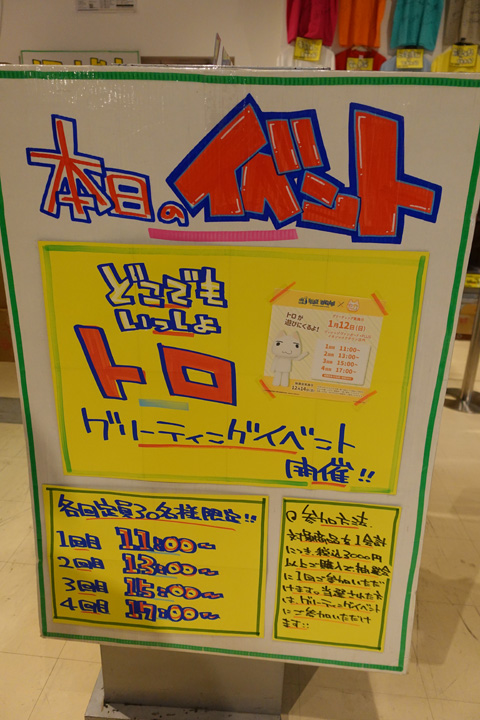 本日のイベント
どこでも
いっしょ
トロ
トロが
遊びにくるよ!
1月12日(日)
1回目 11:00~
2回目 13:00~
3回目 15:00~
4回目 17:00~
グリーティングイベント
開催!!
各回定員30名様限定!!
1回目 11:00~
2回目 13:00~
3回目 15:00~
4回目 17:00~
参加方法
対象商品を1会計
につき、税込3000円
以上ご購入で抽選会
に1回ご参加いただ
けます。当選された方
は、グリーティングイベント
にご参加いただけ
ます!!